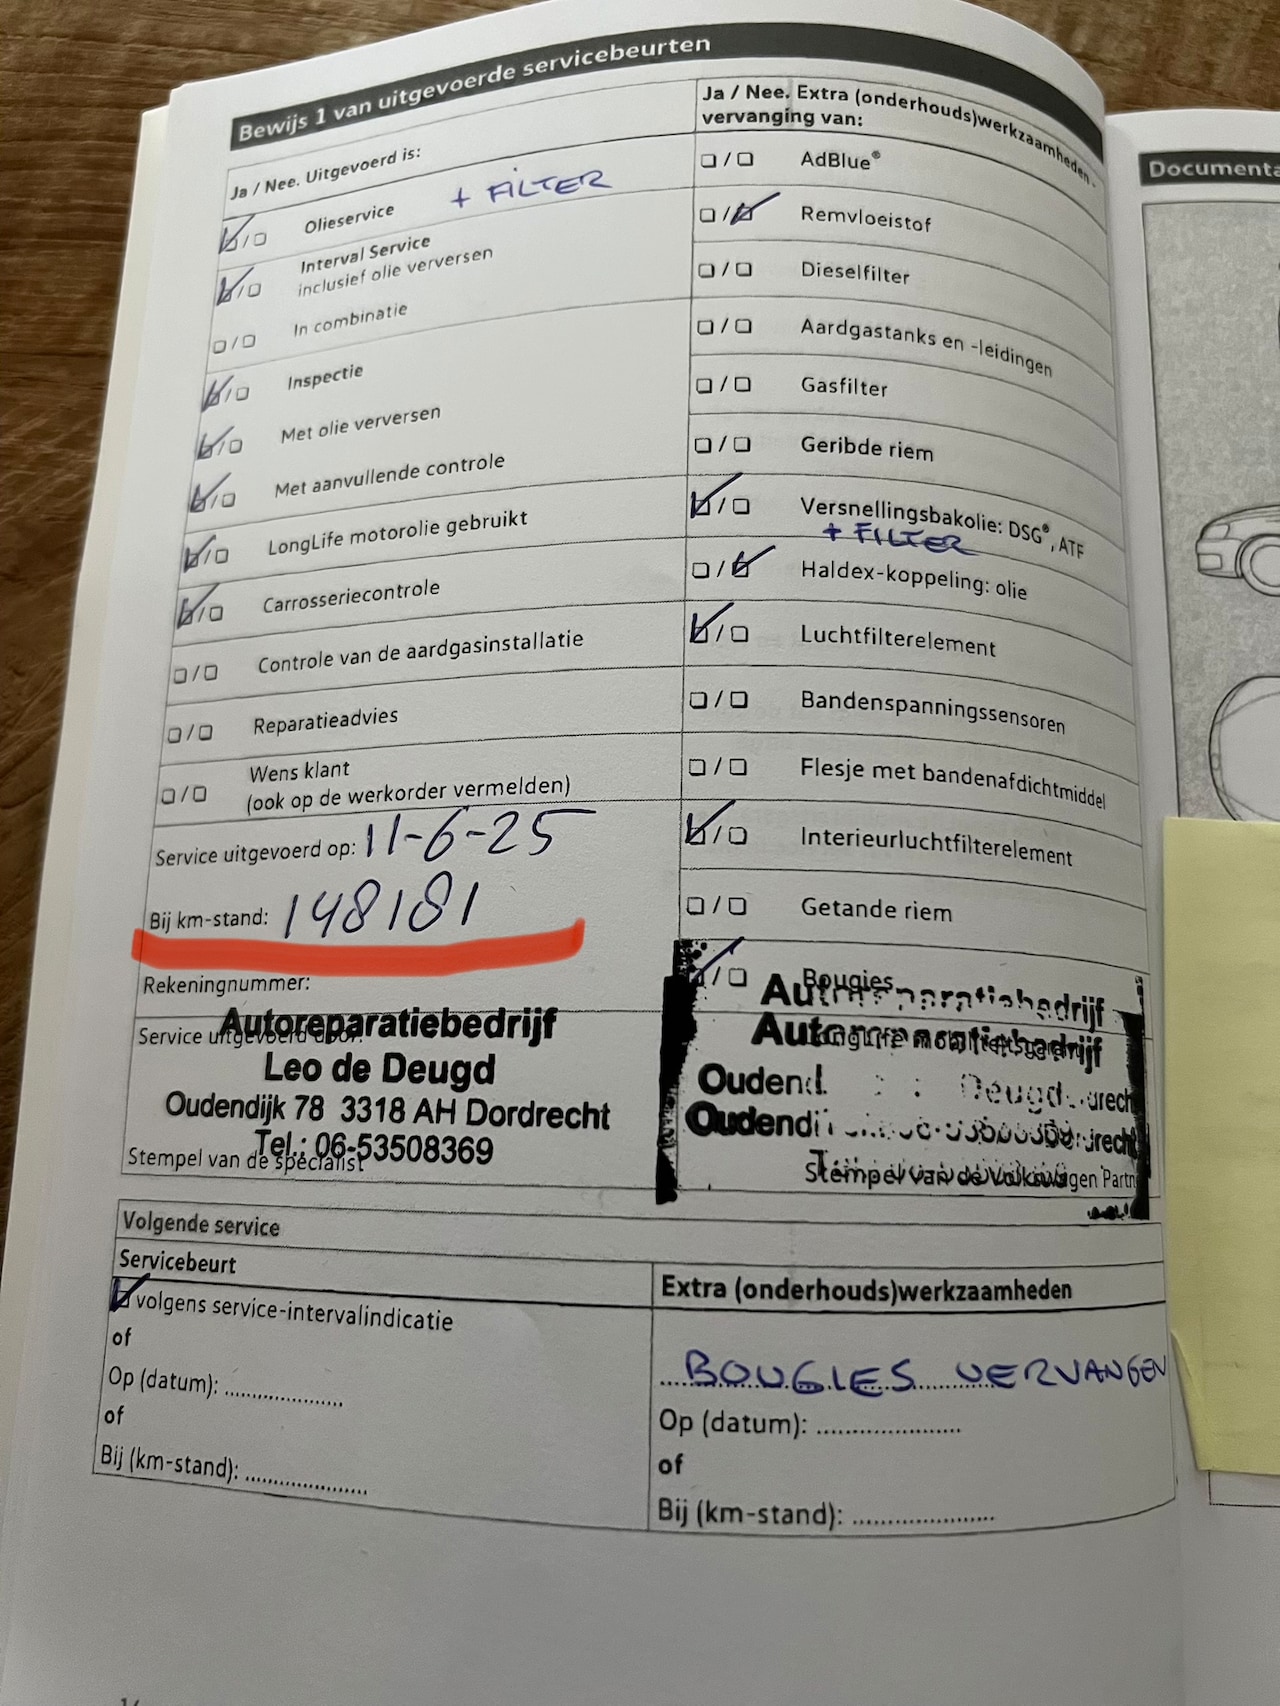 Bewijs 1 van uitgevoerde servicebeurten
Ja / Nee. Uitgevoerd is:
Olieservice + FILTER
Interval Service
inclusief olie verversen
In combinatie
Inspectie
Met olie verversen
Met aanvullende controle
LongLife motorolie gebruikt
Carrosseriecontrole
Controle van de aardgasinstallatie
Reparatieadvies
Wens klant
(ook op de werkorder vermelden)
Service uitgevoerd op: 11-6-25
Bij km-stand: 148181
Rekeningnummer:
Service uitgevoerd door:
Autoreparatiebedrijf
Leo de Deugd
Oudendijk 78 3318 AH Dordrecht
Tel.: 06-53508369
Stempel van de specialist
Ja / Nee. Extra (onderhouds)werkzaamheden -
vervanging van:
AdBlue®
Remvloeistof
Dieselfilter
Aardgastanks en -leidingen
Gasfilter
Geribde riem
Versnellingsbakolie: DSG®, ATF
+ FILTER
Haldex-koppeling: olie
Luchtfilterelement
Bandenspanningssensoren
Flesje met bandenafdichtmiddel
Interieurluchtfilterelement
Getande riem
Bougies
Autoreparatiebedrijf
Autoreparatiebedrijf
Deugd
Stempel van de Volkswagen Partn
Volgende service
Servicebeurt
volgens service-intervalindicatie
of
Op (datum): ....................
of
Bij (km-stand): ....................
Extra (onderhouds)werkzaamheden
BOUGIES VERVANGEN
Op (datum): ....................
of
Bij (km-stand): ....................
Documenta